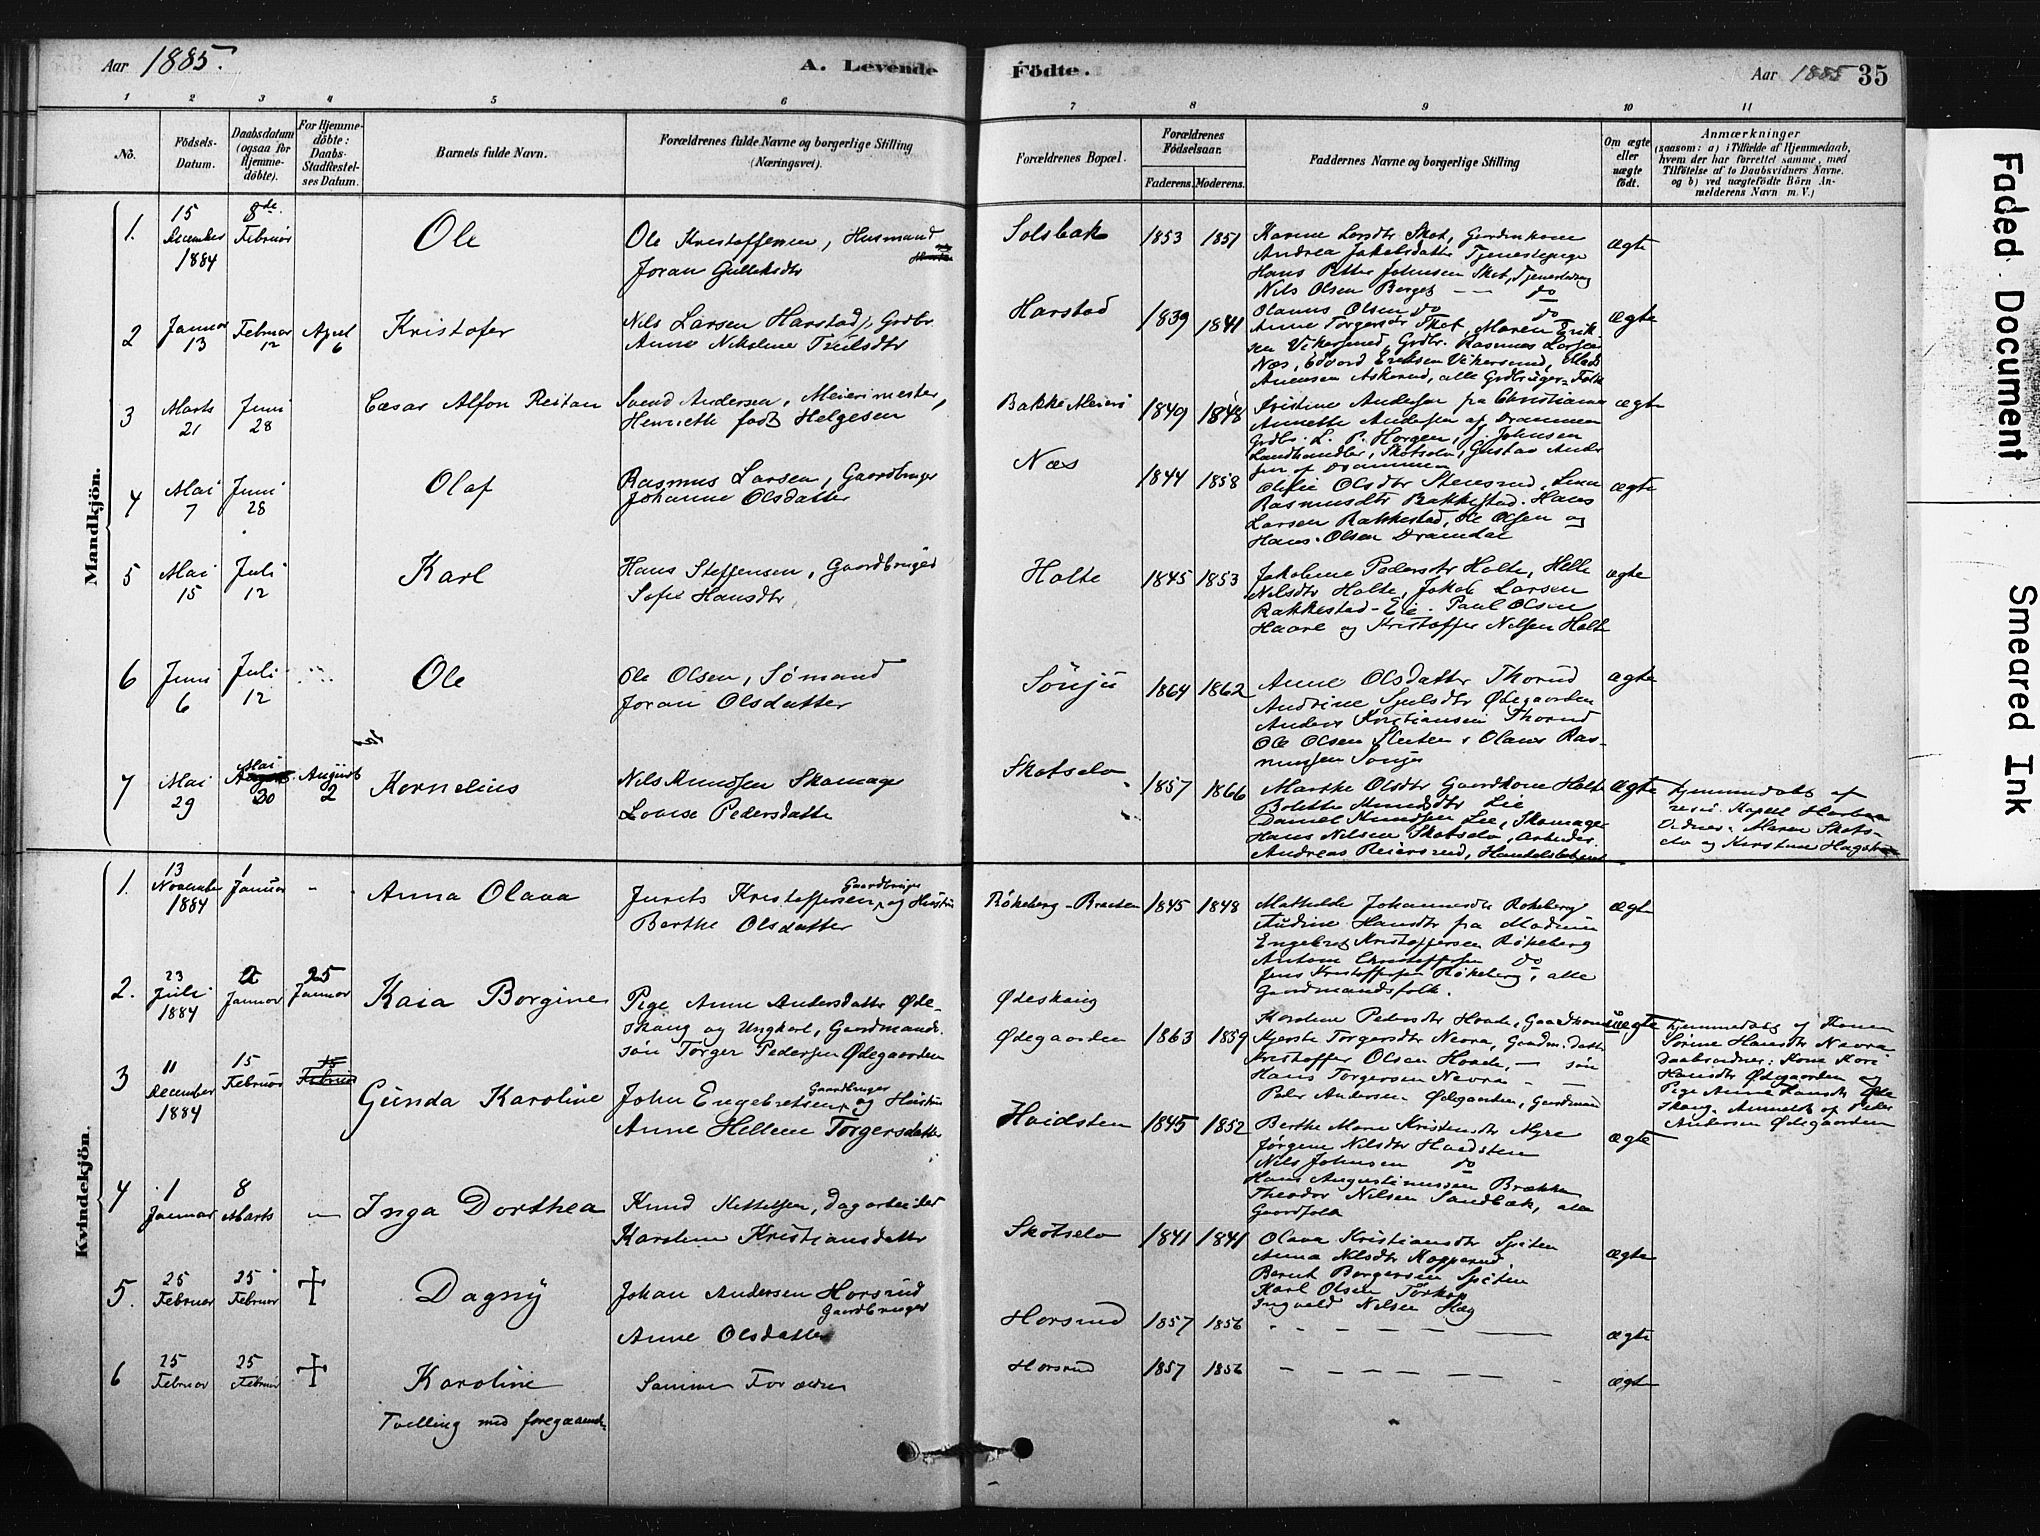 Aar 1885.
A. Levende Födte.
Aar 1885 35
1 2 3 4 5 6 7 8 9 10 11
No.
Födsels-Datum.
Daabsdatum (ogsaa for Hjemme-döbte).
For Hjemme-döbte: Daabs-Stadfæstel-ses Datum.
Barnets fulde Navn.
Forældrenes fulde Navne og borgerlige Stilling (Næringsvei).
Forældrenes Bopæl.
Forældrenes Födselsaar.
Faderens. Moderens.
Faddernes Navne og borgerlig Stilling
Om ægte eller uægte födt.
Anmærkninger
(saasom: a) i Tilfælde af Hjemmedaab,
hvem der har forrettet samme, med
Tilföielse af to Daabsvidners Navne.
og b) ved uægtefödte Börn An-
melderens Navn m. V.)
Mandkjön.
1. 15 December 1884
8de Februar
Ole
Ole Kristoffersen, Husmand
Joran Gulleksdtr
Solsbak 1853 1851
Karine Larsdtr Skot, Gardmkone
Andrea Jakobsdatter Tjenestepige
Hans Petter Johnsen Skot, Tjenestedreng
Nils Olsen Berget — — do
Olanus Olsen do do
ægte
2 Januar 13 Februar 12 April 6
Kristofer
Nils Larsen Harstad, Grdbr
Anne Nikoline Truelsdtr
Harstad 1839 1841
Anne Torgersdtr Skot, Maren Erik
sen Vikersund, Grdbr. Rasmus Larsen
Næs, Edvard Eriksen Vikersund, Mads
Anensen Askerud, alle Grdbruger=Folk
ægte
3 Marts 21 Juni 28
Cæsar Alfon Reitan
Svend Andersen, Meierimester,
Henriette født Helgesen
Bakke Meieri 1849 1848
Kristine Andersen fra Christiania
Annette Andersen af Drammen
Grdbr. L. P. Horgen, J. Johnsen
Landhandler, Skotselv, Gustav Ander
sen af Drammen
ægte
4 Mai 7 Juni 28
Olaf
Rasmus Larsen, Gaardbruger
Johanne Olsdatter
Næs 1844 1858
Olsdtr Stensrud, Lina
Rasmusdtr Bakkestad. Hans
Larsen Rakkestad, Ole Olsen og
Hans Olsen Dramdal
ægte
5 Mai 15 Juli 12
Karl
Hans Steffensen, Gaardbruger
Sofie Hansdtr
Holte 1845 1853
Jakobine Pedersdtr Holte, Helle
Nilsdtr Holte, Jakob Larsen
Rakkestad-Eie. Paul Olsen
Haare og Kristoffer Nilsen Holte
ægte
6 Juni 6 Juli 12
Ole
Ole Olsen, Sømand
Joran Olsdatter
Sönju 1864 1862
Anne Olsdatter Thorud
Andrine Ødegaarden
Anders Kristiansen Thorud
Ole Olsen Sluten, Olaus Ras-
mussen Sönju
ægte
7 Mai 29 Mai 30 August 2
Kornelius
Nils Knudsen Skomager
Lovise Pedersdatter
Skotselv 1857 1866
Marthe Olsdtr Gaardkone Holte
Bolette Knudsdtr Lie
Daniel Knudsen Lie, Skomager
Hans Nilsen Skotselv, Arbeider
Andreas Reiersrud, Handelsbetjent
ægte
Hjemmedøbt af
resid. Kapell
Vidner: Maren Skots-
elv og Kirstine
Kvindekjön.
1. 13 November 1884 1 Januar -
Anna Olava
Gaardbruger
Kristoffersen, og Hustru
Berthe Olsdatter
Røkeberg-Braaten 1845 1848
Mathilde Johannesdtr Røkeberg
Andrine Hansdtr fra Modum
Engebret Kristoffersen Røkeberg
Anton Christoffersen do
Jens Kristoffersen Røkeberg, alle
Gaardmandsfolk.
ægte
2. 23 Juli 1884 2 Januar 25 Januar
Kaia Borgine
Pige Anne Andersdatter Øde-
skang og Ungkarl, Gaardmands-
søn Torger Pedersen Ødegaarden
Ødeskang
Ødegaarden 1863 1859
Karoline Pedersdtr Hvade, Gaardkone
Kjerste Torgersdtr Nevra, Gaardm. datter
Kristoffer Olsen Hvade, — søn
Hans Torgersen Nevra — —
Peder Andersen Ødegaarden, Gaardmand
uægte
Hjemmedøbt af Konen
Sørine Hansdtr Nevra
Daabsvidner: Kone Kari
Hansdtr Ødegaarden og
Pige Anne Hansdtr Øde
skang. Anmeldt af Peder
Andersen Ødegaarden
3 11 December 1884 15 Februar
Gunda Karoline
Gaardbruger
John Engebretsen, og Hustru
Anne Hellene Torgersdatter
Hvidsten 1845 1852
Berthe Marie Kristensdtr Myre
Jørgine Nilsdtr Hvidsten
Nils Johnsen do
Hans Augustinussen Brækka
Theodor Nilsen Sandbæk, alle
Gaardfolk
ægte
4 1 Januar 8 Marts —
Inga Dorthea
Knud Kittelsen, Dagarbeider
Karoline Kristiansdatter
Skotselv 1841 1841
Olava Kristiansdtr Spiten
Anna Nilsdtr Kopperud
Bernt Borgersen Spiten
Karl Olsen Torkop
Ingvald Nilsen Hæg
ægte
5. 25 Februar 25 Februar +
Dagny
Johan Andersen Horsrud
Gaardbruger
Anne Olsdatter
Horsrud 1857 1856
ægte
6 25 Februar 25 Februar +
Karoline
Samme Forældre
Tvilling med foregaaende
Horsrud 1857 1856
ægte
Faded Document
Smeared Ink